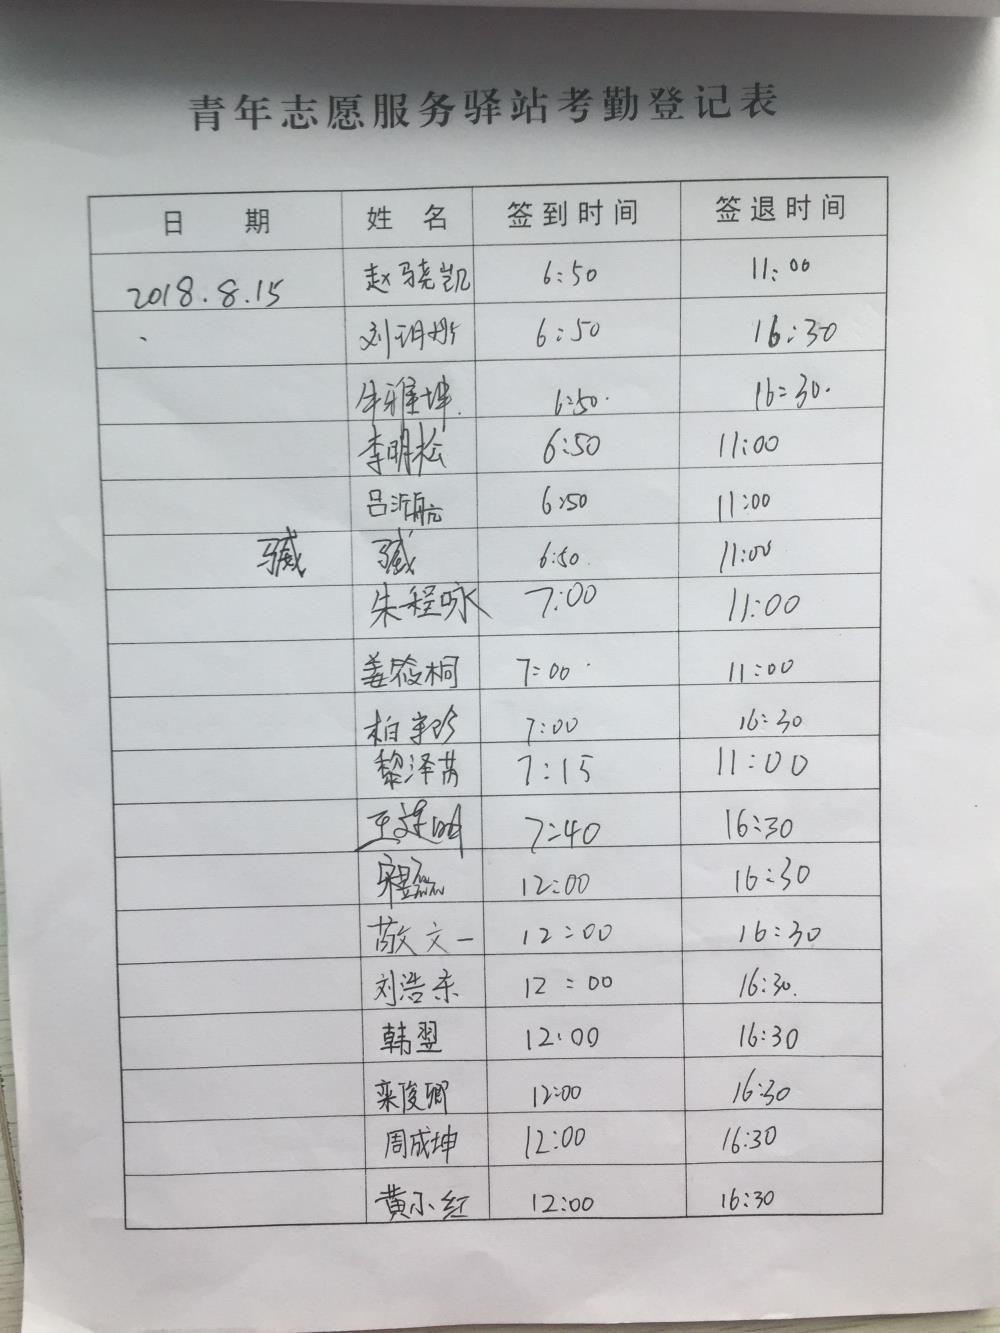 青年志愿服务驿站考勤登记表
日 期 姓 名 签到时间 签退时间
2018.8.15 赵骁凯 6:50 11:00
刘玥彤 6:50 16:30
牛雅坤 6:50 16:30
李明松 6:50 11:00
吕沂航 6:50 11:00
6:50 11:00
朱程咏 7:00 11:00
姜筱桐 7:00 11:00
柏宇珍 7:00 16:30
黎泽芮 7:15 11:00
7:40 16:30
12:00 16:30
敬文一 12:00 16:30
刘浩东 12:00 16:30
韩翌 12:00 16:30
栾俊卿 12:00 16:30
周成坤 12:00 16:30
黄小红 12:00 16:30